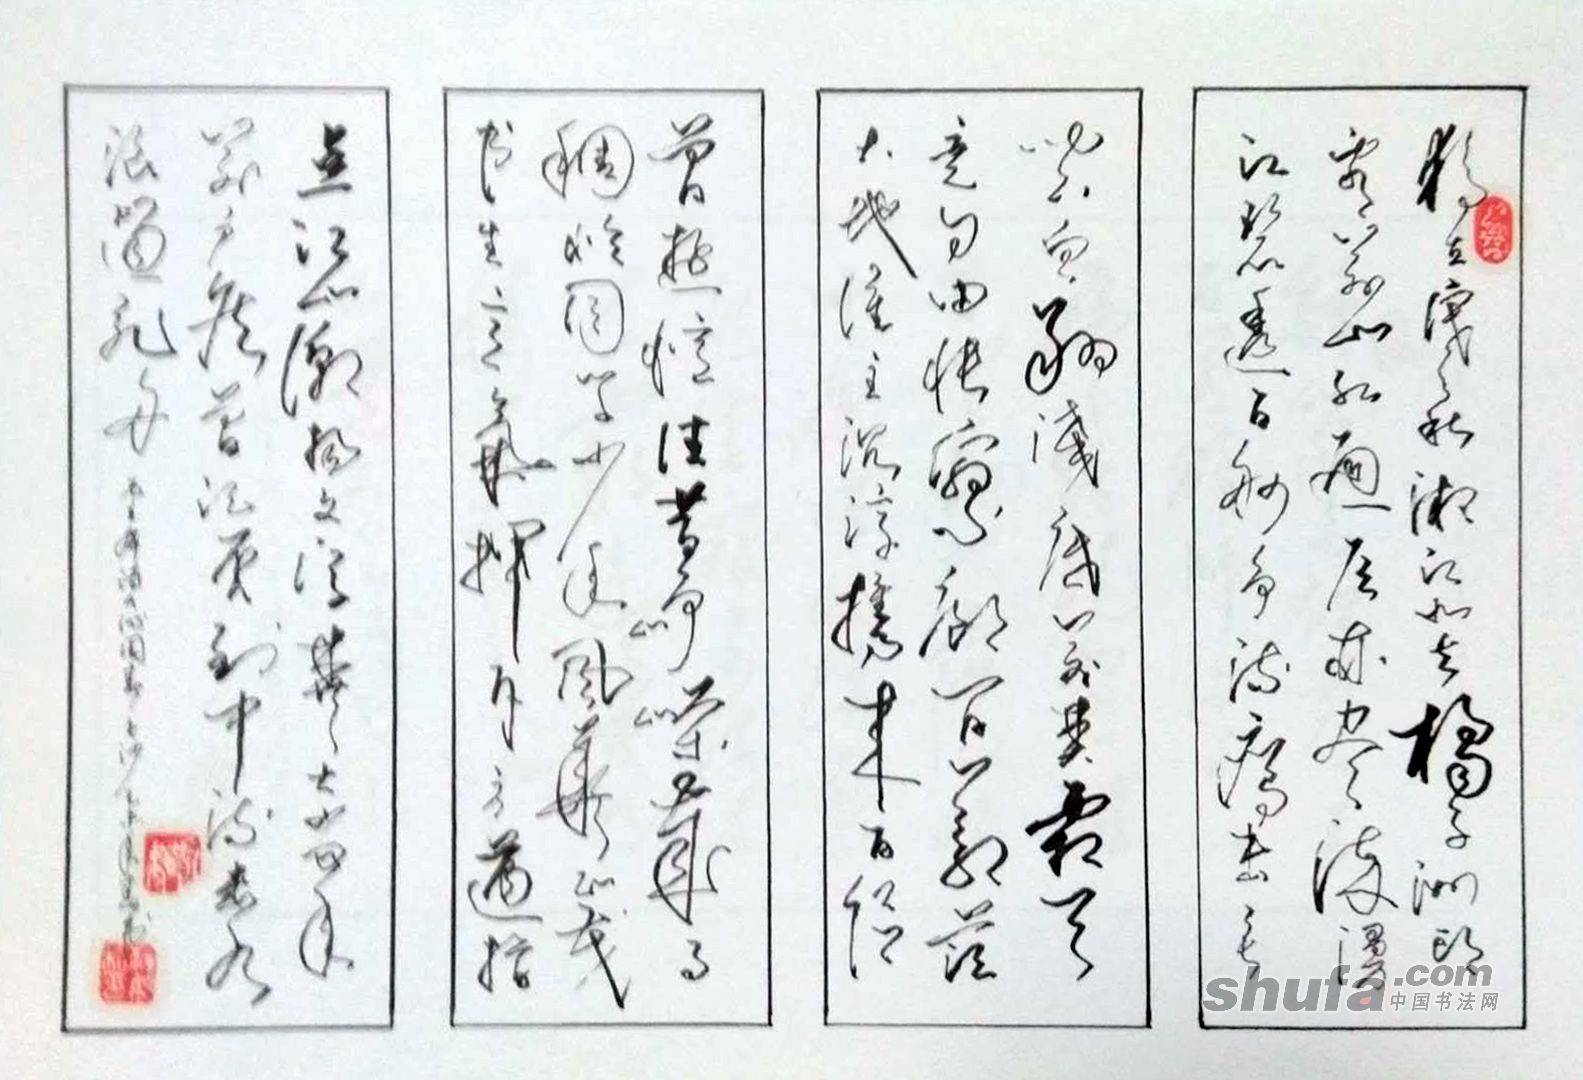 独立寒秋湘江北去橘子洲头
看万山红遍层林尽染漫
江碧透百舸争流鹰击长
空鱼翔浅底万类霜天
竞自由怅寥廓问苍茫
大地谁主沉浮携来百侣
曾游忆往昔峥嵘岁月
稠恰同学少年风华正茂
书生意气挥斥方遒指
点江山激扬文字粪土当年
万户侯曾记否到中流击水
浪遏飞舟
shufa.com
中国书法网